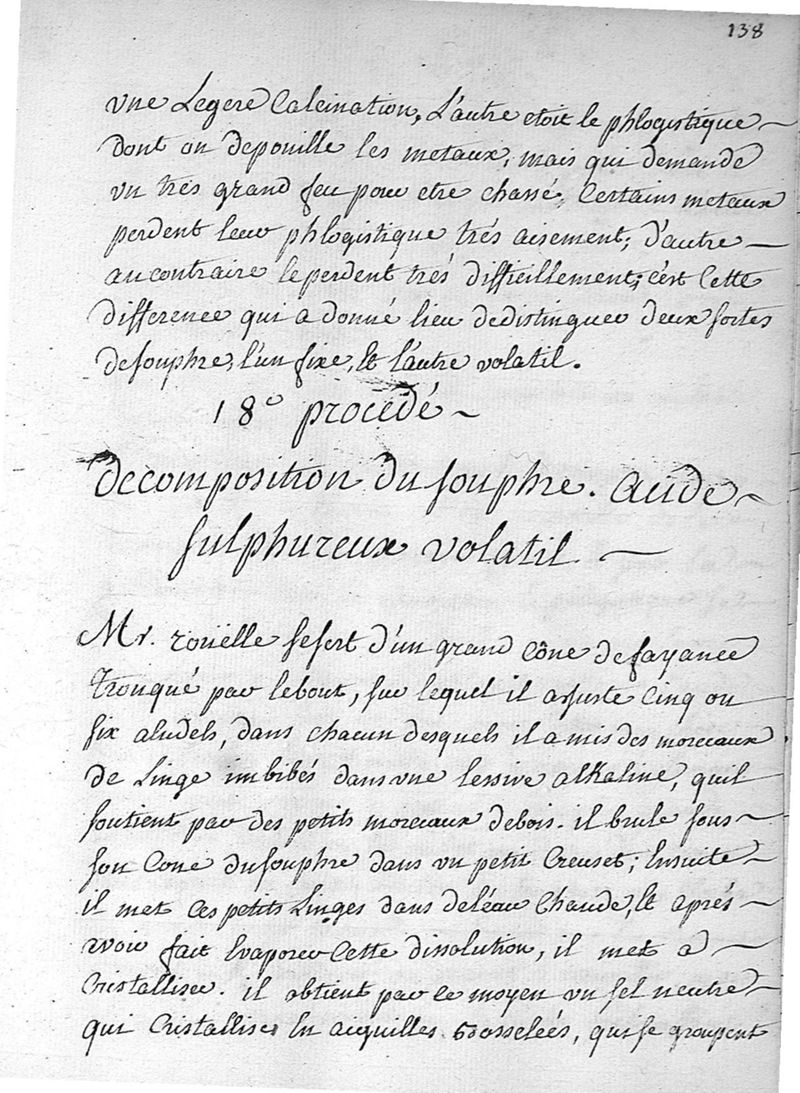 138
une Legere Calcination, L'autre etoit le phlogistique
dont on depouille les metaux, mais qui demande
un trés grand feu pour etre chassé, Certains metaux
perdent leur phlogistique trés aisement; d'autre
au contraire le perdent trés difficillement; c'est Cette
difference qui a donné lieu de distinguer deux sortes
de souphre, l'un fixe, et l'autre volatil.
18e procedé
decomposition du souphre. acide
sulphureux volatil
Mr. rouëlle se sert d'un grand Cône de fayance
Tronqué par le bout, sur lequel il ajuste Cinq ou
six aludels, dans chacun desquels il a mis des morceaux
de Linge imbibés dans une lessive alkaline, quil
soutient par des petits morceaux de bois. il brule sous
son Cone du souphre dans un petit Creuset; Ensuite
il met Ces petits Linges dans de léau Chaude, et aprés
avoir fait Evaporer Cette dissolution, il met a
Cristalliser. il obtient par ce moyen un sel neutre
qui Cristallise En aeguilles bosselées, qui se groupent